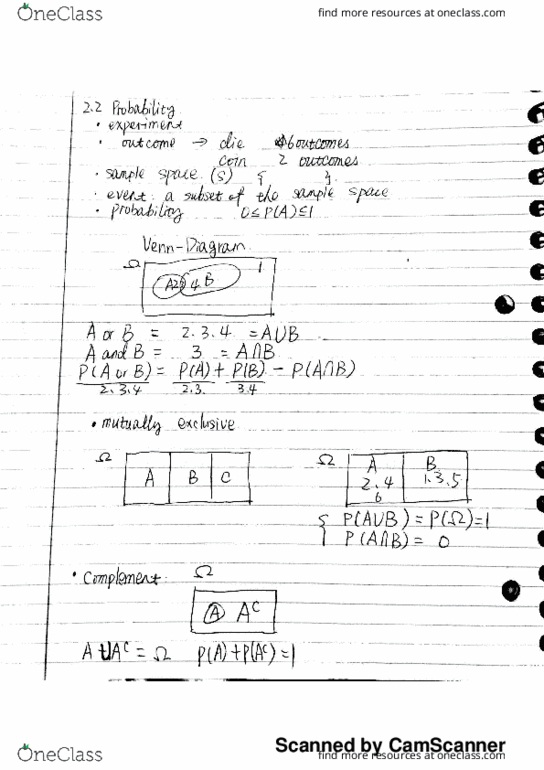 OneClass
find more resources at oneclass.com
2.2 Probability
• experiment
• outcome → die 6 outcomes
coin 2 outcomes
• sample space (S) { }.
• event: a subset of the sample space
• probability 0≤P(A)≤1
Venn-Diagram
Ω
1
A 2 3 4 B
A or B = 2.3.4 = A∪B
A and B = 3 = A∩B
P(A or B) = P(A) + P(B) - P(A∩B)
2.3.4 2.3. 3.4
• mutually exclusive
Ω
A B C
Ω
A B
2.4 1.3.5
6
{ P(A∪B) = P(Ω)=1
P(A∩B) = 0
• Complement: Ω
A Aᶜ
A ∪ Aᶜ = Ω P(A)+P(Aᶜ)=1
Scanned by CamScanner
OneClass
find more resources at oneclass.com